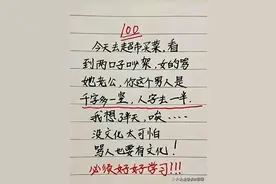 100
今天去超市买菜，看
到两口子吵架，女的骂
她老公，你这个男人是
千字多一竖，人字去一半.
我想了半天，唉……
没文化太可怕
骂人也要有文化！
必须好好学习!!!